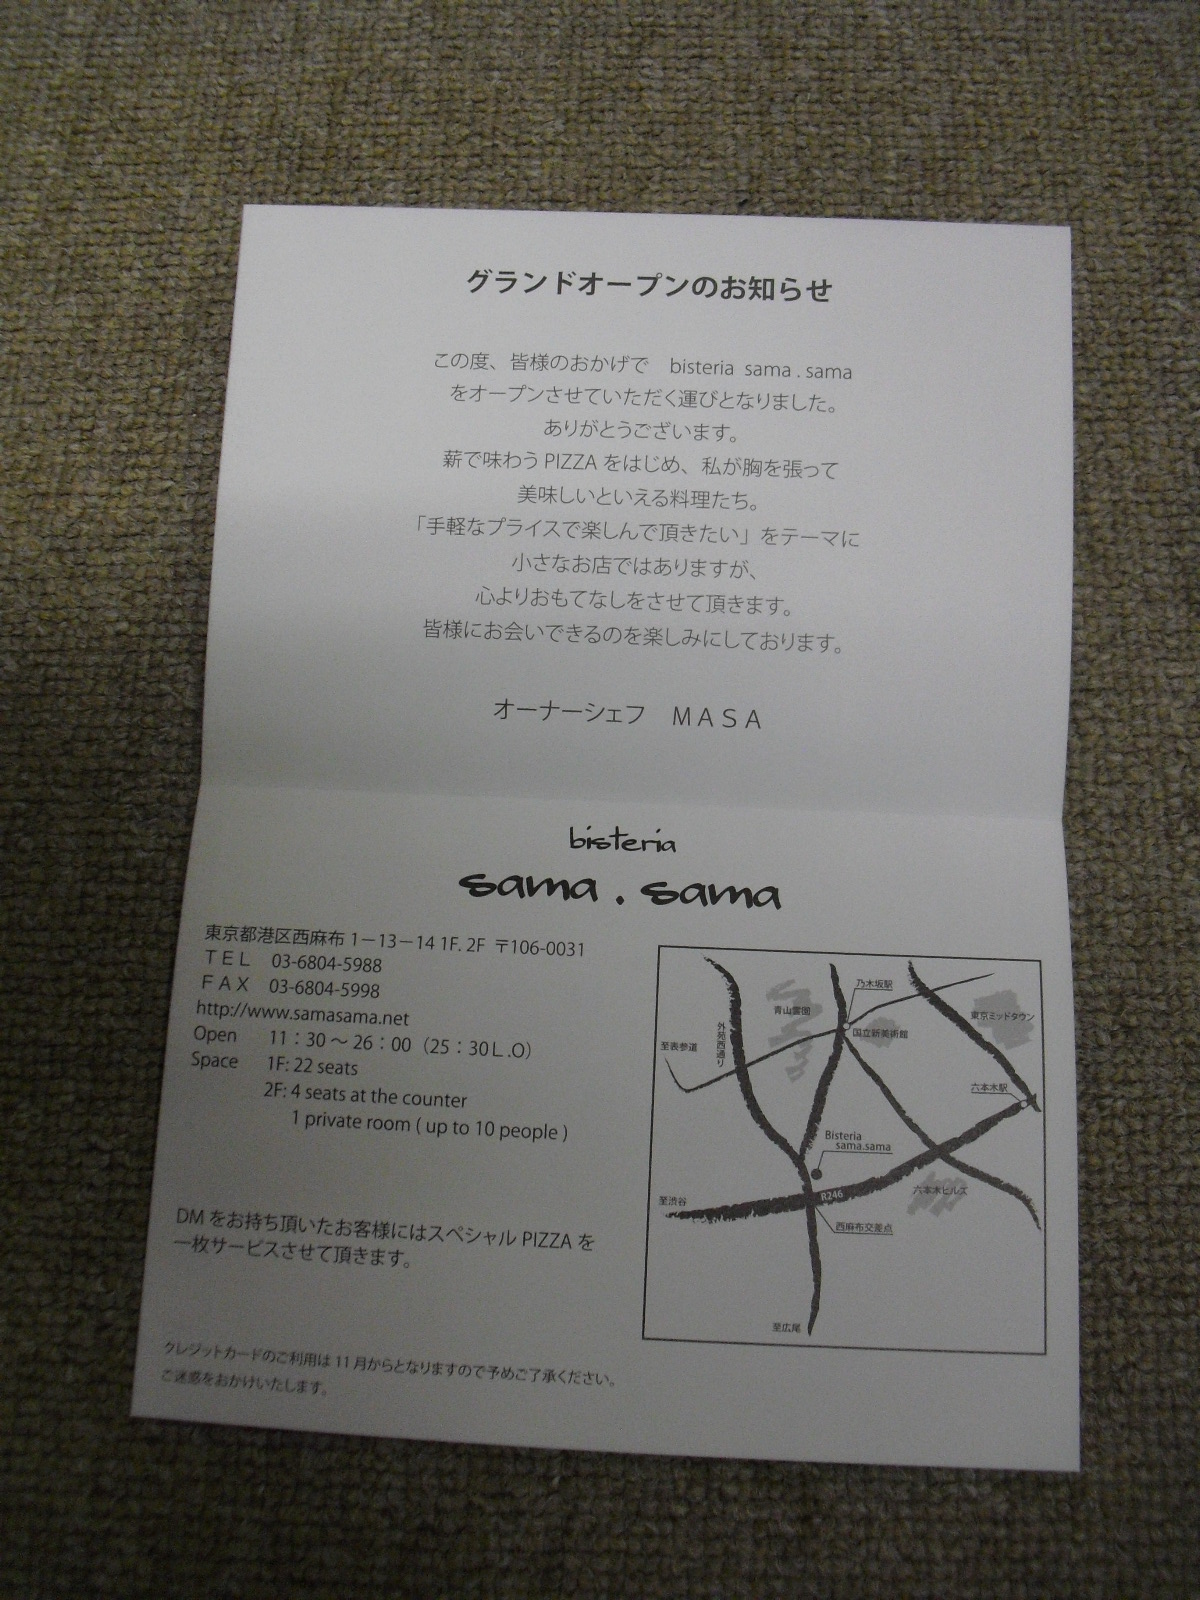 グランドオープンのお知らせ
この度、皆様のおかげで bisteria sama . sama
をオープンさせていただく運びとなりました。
ありがとうございます。
薪で味わう PIZZA をはじめ、私が胸を張って
美味しいといえる料理たち。
「手軽なプライスで楽しんで頂きたい」をテーマに
小さなお店ではありますが、
心よりおもてなしをさせて頂きます。
皆様にお会いできるのを楽しみにしております。
オーナーシェフ MASA
bisteria
sama . sama
東京都港区西麻布 1－13－14 1F. 2F 〒106-0031
TEL 03-6804-5988
FAX 03-6804-5998
http://www.samasama.net
Open 11：30 ～ 26：00（25：30 L .O）
Space 1F: 22 seats
2F: 4 seats at the counter
1 private room ( up to 10 people )
DM をお持ち頂いたお客様にはスペシャル PIZZA を
一枚サービスさせて頂きます。
クレジットカードのご利用は 11 月からとなりますので予めご了承ください。
ご迷惑をおかけいたします。
乃木坂駅
青山霊園
東京ミッドタウン
外苑西通り
国立新美術館
至表参道
六本木駅
Bisteria
sama.sama
至渋谷
R246
六本木ヒルズ
西麻布交差点
至広尾